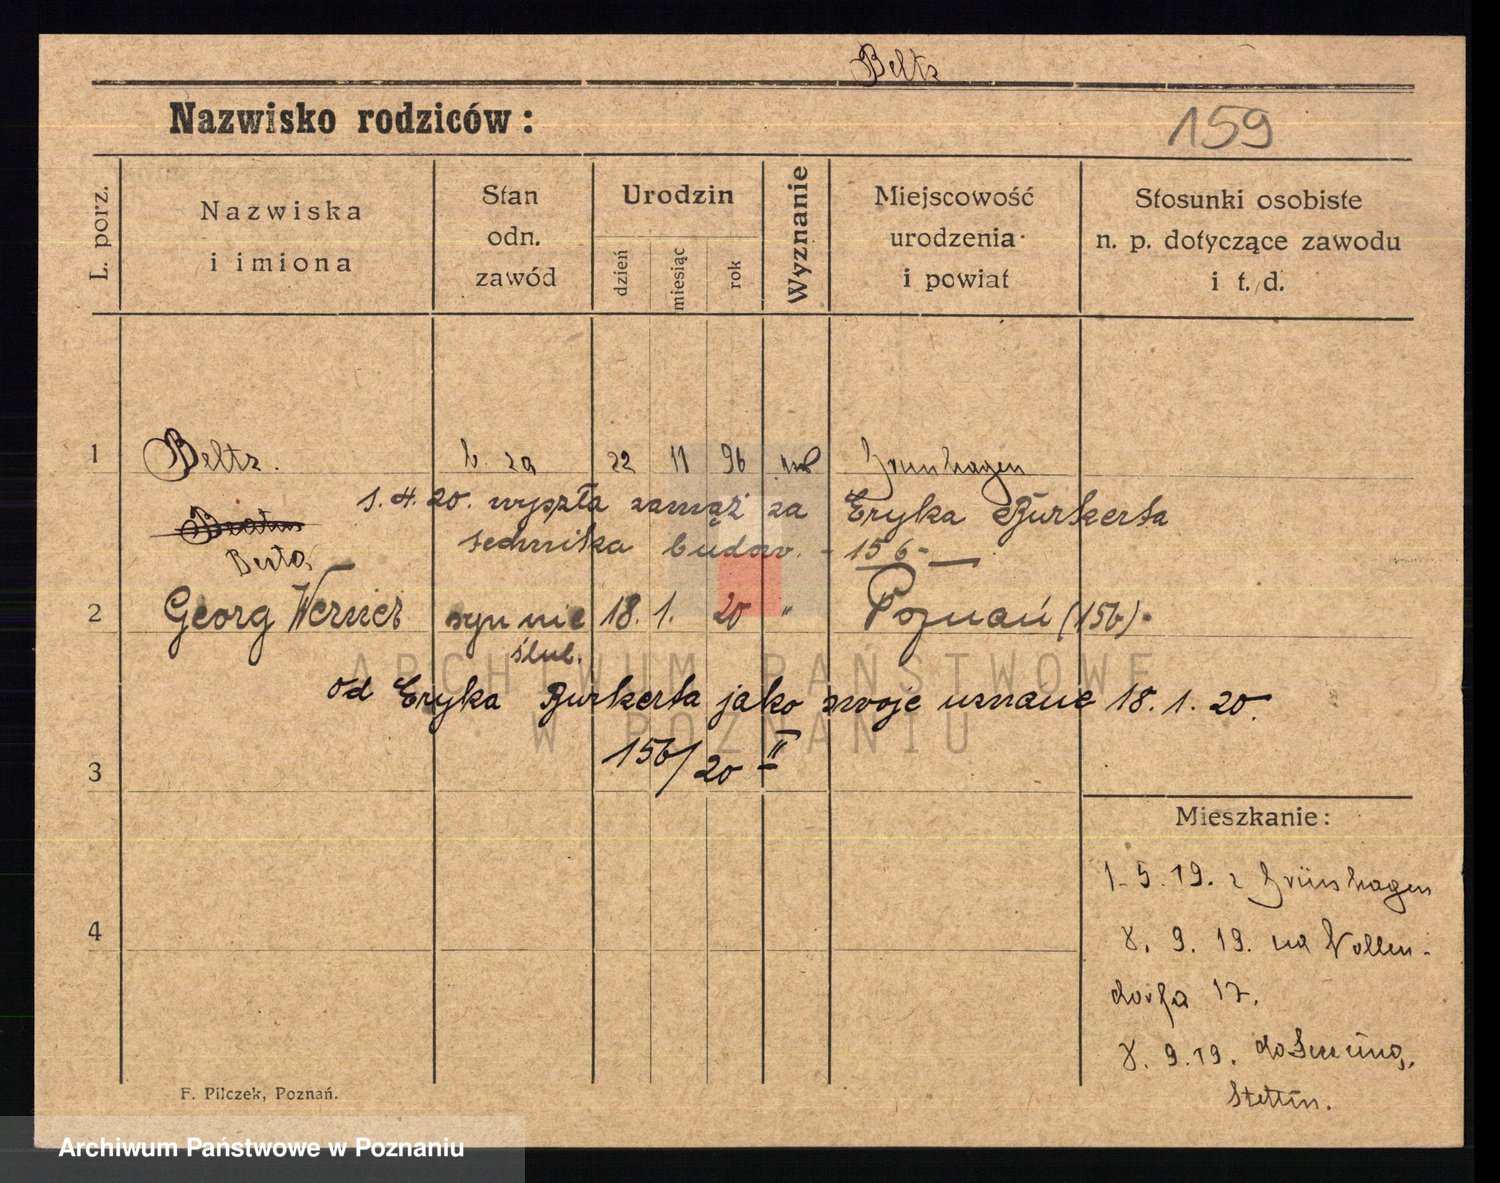 Beltz
Nazwisko rodziców:
159
L. porz.
Nazwiska
i imiona
Stan
odn.
zawód
Urodzin
dzień
miesiąc
rok
Wyznanie
Miejscowość
urodzenia
i powiat
Stosunki osobiste
n. p. dotyczące zawodu
i t. d.
1 Beltz. 22 11 96 Grünhagen
1.4.20. wyszła zamąż za Eryka Burkerta
Berta
technika budow. - 156 -
2 Georg Werner syn nie 18. 1. 20 " Poznań (156).
ślub.
od Eryka Burkerta jako swoje uznane 18.1.20.
156/20 II
3
Mieszkanie:
1.5.19. z Grünhagen
8.9.19. na Wollen-
dorfa 17.
4
8.9.19. do
Stettin.
F. Pilczek, Poznań.
ARCHIWUM PAŃSTWOWE
W POZNANIU
Archiwum Państwowe w Poznaniu